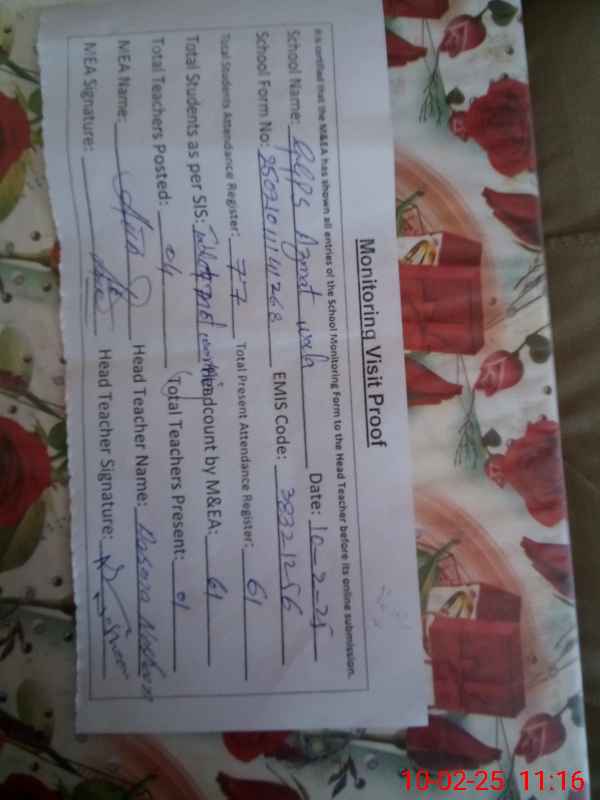 Monitoring Visit Proof
It is certified that the M&EA has shown all entries of the School Monitoring Form to the Head Teacher before its online submission.
School Name: GGPS Azmat Date: 10-2-25
School Form No: EMIS Code: 38321256
Total Students Attendance Register: 77 Total Present Attendance Register: 61
Total Students as per SIS: Headcount by M&EA: 61
Total Teachers Posted: 04 Total Teachers Present: 01
MEA Name: Head Teacher Name:
MEA Signature: Head Teacher Signature:
10-02-25 11:16